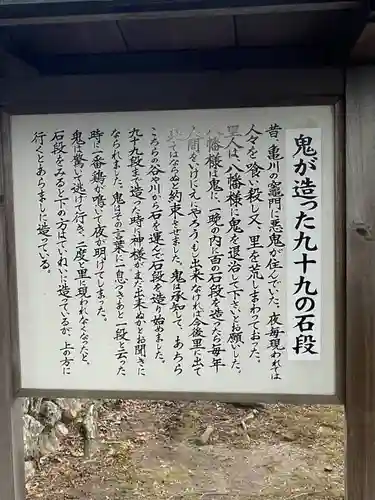 鬼が造った九十九の石段
昔、亀川の竈門に悪鬼が住んでいた。夜毎現われては
人々を喰い殺し、又、里を荒しまわっておった。
里人は、八幡様に鬼を退治して下さいとお願いした。
八幡様は鬼に、「一晩の内に百の石段を造ったら毎年
人間をいけにえにやろう。もし出来なければ今後里に出て
はならぬと約束させました。鬼は承知して、あちら
こちらの谷や川から石を運んで石段を造り始めました。
九十九段まで造った時に神様がまだ出来ぬかとお聞きに
なられました。鬼はその言葉に一息つきあと一段と云った
時に一番鶏が鳴いて夜が明けてしまった。
鬼は驚いて逃げて行き、二度と里に現われなくなったと。
石段をみると下の方はていねいに造っているが、上の方に
行くとあらましに造っている。